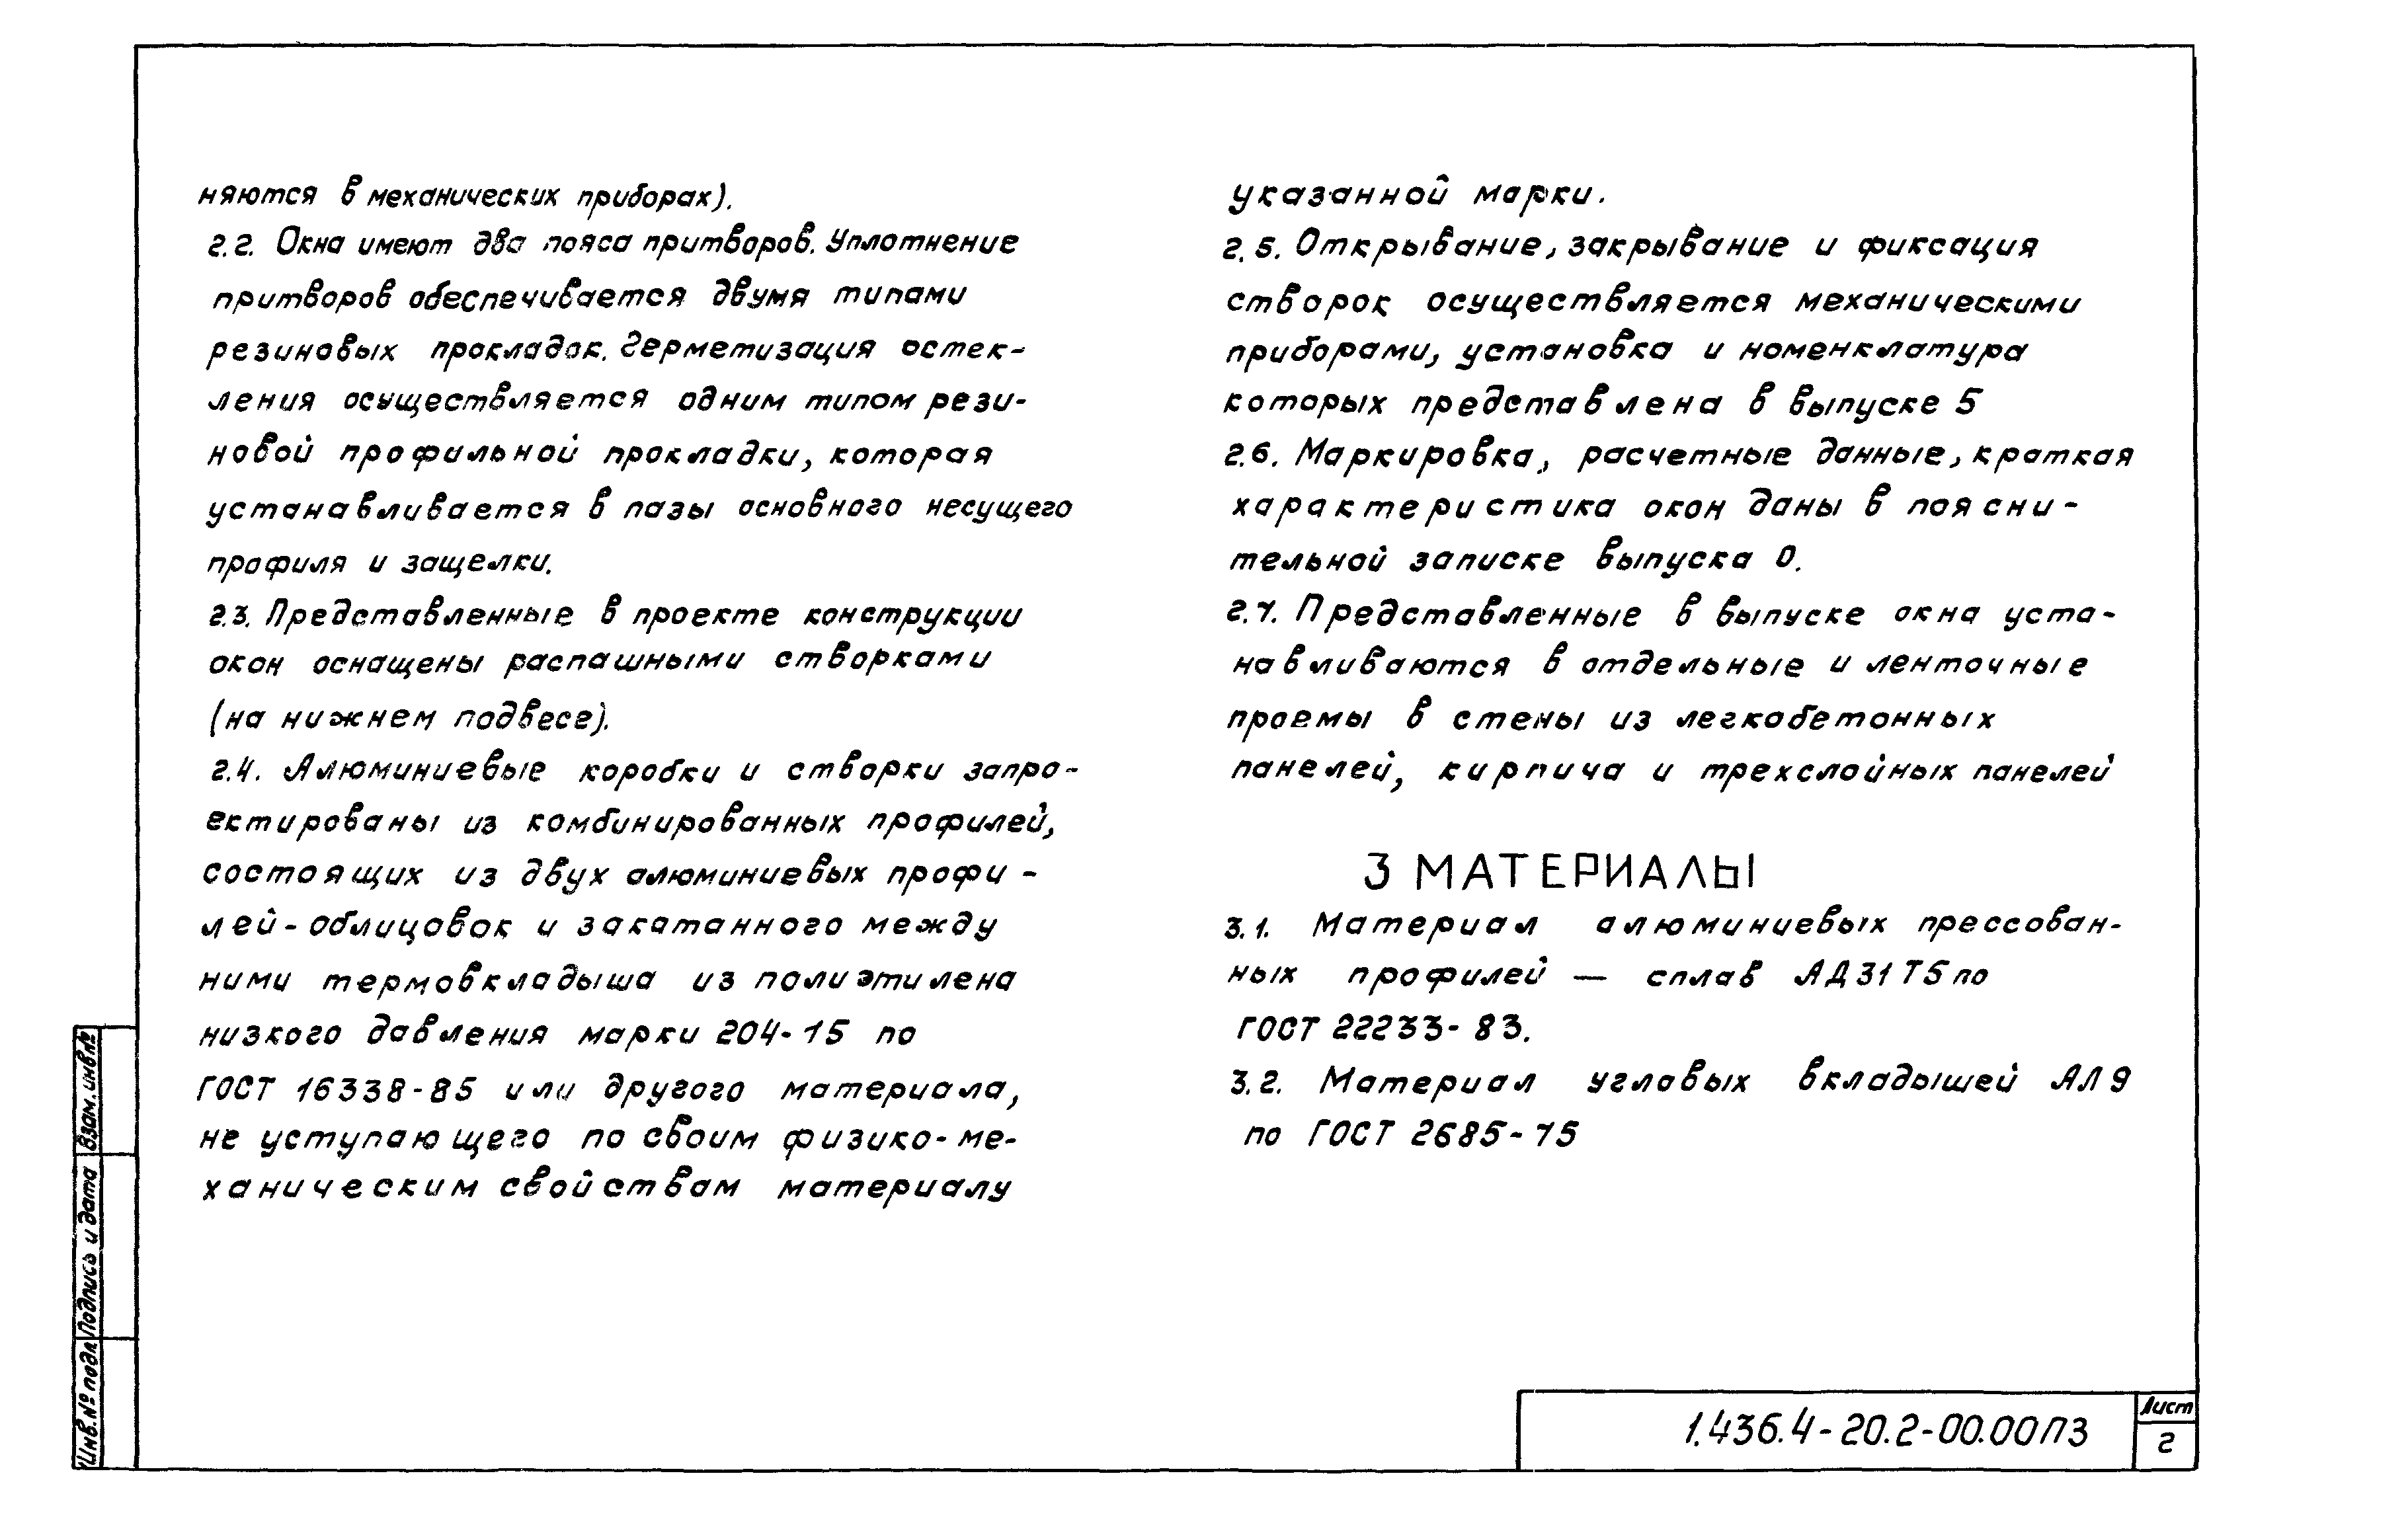 няются в механических приборах).
2.2. Окна имеют два пояса притворов. Уплотнение
притворов обеспечивается двумя типами
резиновых прокладок. Герметизация остек-
ления осуществляется одним типом рези-
новой профильной прокладки, которая
устанавливается в пазы основного несущего
профиля и защелки.
2.3. Представленные в проекте конструкции
окон оснащены распашными створками
(на нижнем подвесе).
2.4. Алюминиевые коробки и створки запро-
ектированы из комбинированных профилей,
состоящих из двух алюминиевых профи-
лей-облицовок и закатанного между
ними термовкладыша из полиэтилена
низкого давления марки 204-15 по
ГОСТ 16338-85 или другого материала,
не уступающего по своим физико-ме-
ханическим свойствам материалу
указанной марки.
2.5. Открывание, закрывание и фиксация
створок осуществляется механическими
приборами, установка и номенклатура
которых представлена в выпуске 5
2.6. Маркировка, расчетные данные, краткая
характеристика окон даны в поясни-
тельной записке выпуска 0.
2.7. Представленные в выпуске окна уста-
навливаются в отдельные и ленточные
проемы в стены из легкобетонных
панелей, кирпича и трехслойных панелей
3 МАТЕРИАЛЫ
3.1. Материал алюминиевых прессован-
ных профилей — сплав АД31Т5 по
ГОСТ 22233-83.
3.2. Материал угловых вкладышей АЛ9
по ГОСТ 2685-75
Инв.№ подл
Подпись и дата
Взам. инв.№
1.436.4-20.2-00.00ПЗ
Лист
2